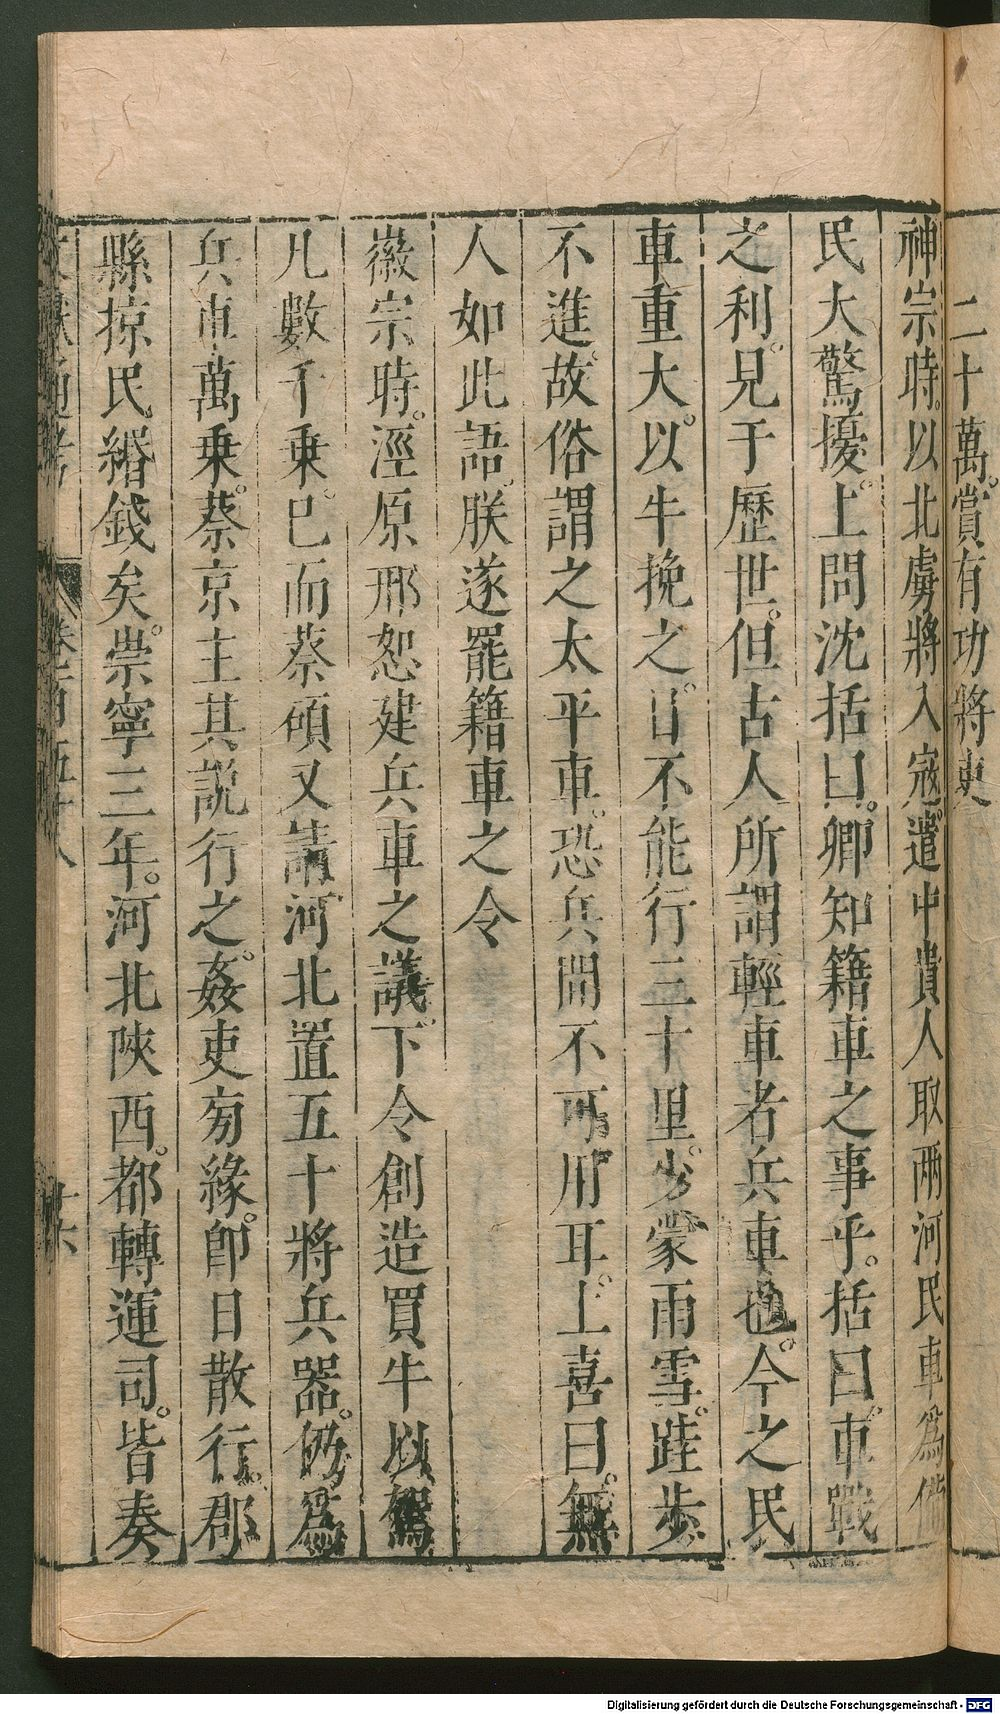 二十萬。賞有功將吏
神宗時。以北虜將入寇。遣中貴人取兩河民車爲備
民大驚擾。上問沈括曰。卿知籍車之事乎。括曰。車戰
之利。見于歷世。但古人所謂輕車者兵車也。今之民
車重大。以牛挽之。日不能行三十里。少蒙雨雪。跬步
不進。故俗謂之太平車。恐兵間不可用耳。上喜曰。無
人如此語。朕遂罷籍車之令
徽宗時。涇原邢恕建兵車之議。下令創造買牛以駕
凡數千乗。巳而蔡碩又請河北置五十將兵器。仍爲
兵車萬乗。蔡京主其説行之。姦吏夤緣。卽日散行。郡
縣掠民緡錢矣。崇寧三年。河北陝西。都轉運司。皆奏
文獻通考 卷一百五十八 廿六
Digitalisierung gefördert durch die Deutsche Forschungsgemeinschaft - DFG